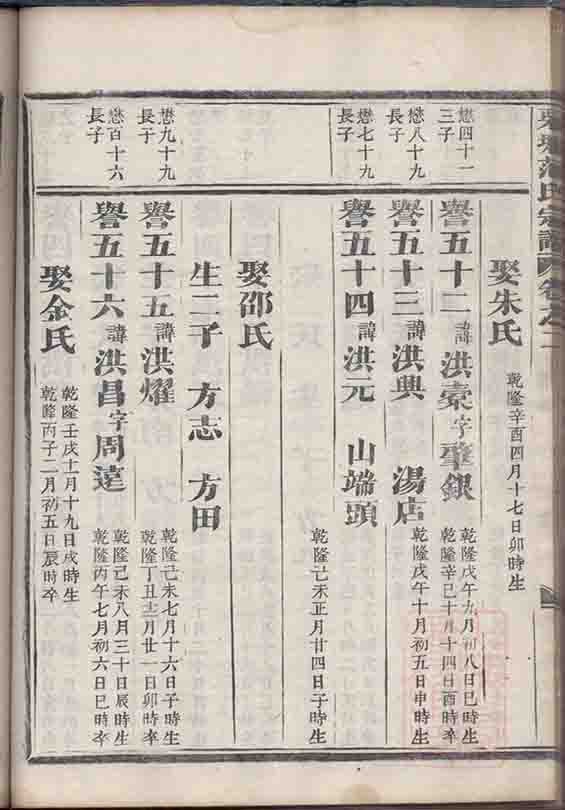 范氏宗譜 卷之二
娶朱氏 乾隆辛酉四月十七日卯時生
懋四十一
三子
譽五十二 諱洪橐 字聖銀 乾隆戊午九月初八日巳時生
乾隆辛巳十月十四日酉時卒
懋八十九
長子
譽五十三 諱洪典 湯店 乾隆戊午十月初五日申時生
懋七十九
長子
譽五十四 諱洪元 山端頭 乾隆己未正月廿四日子時生
娶邵氏
生二子 方志 方田
懋九十九
長子
譽五十五 諱洪燿 乾隆己未七月十六日子時生
乾隆丁丑 月廿一日卯時卒
懋百十六
長子
譽五十六 諱洪昌 字周達 乾隆己未八月三十日辰時生
乾隆丙午七月初六日巳時卒
娶金氏 乾隆壬戌十一月十九日戌時生
乾隆丙子二月初五日辰時卒